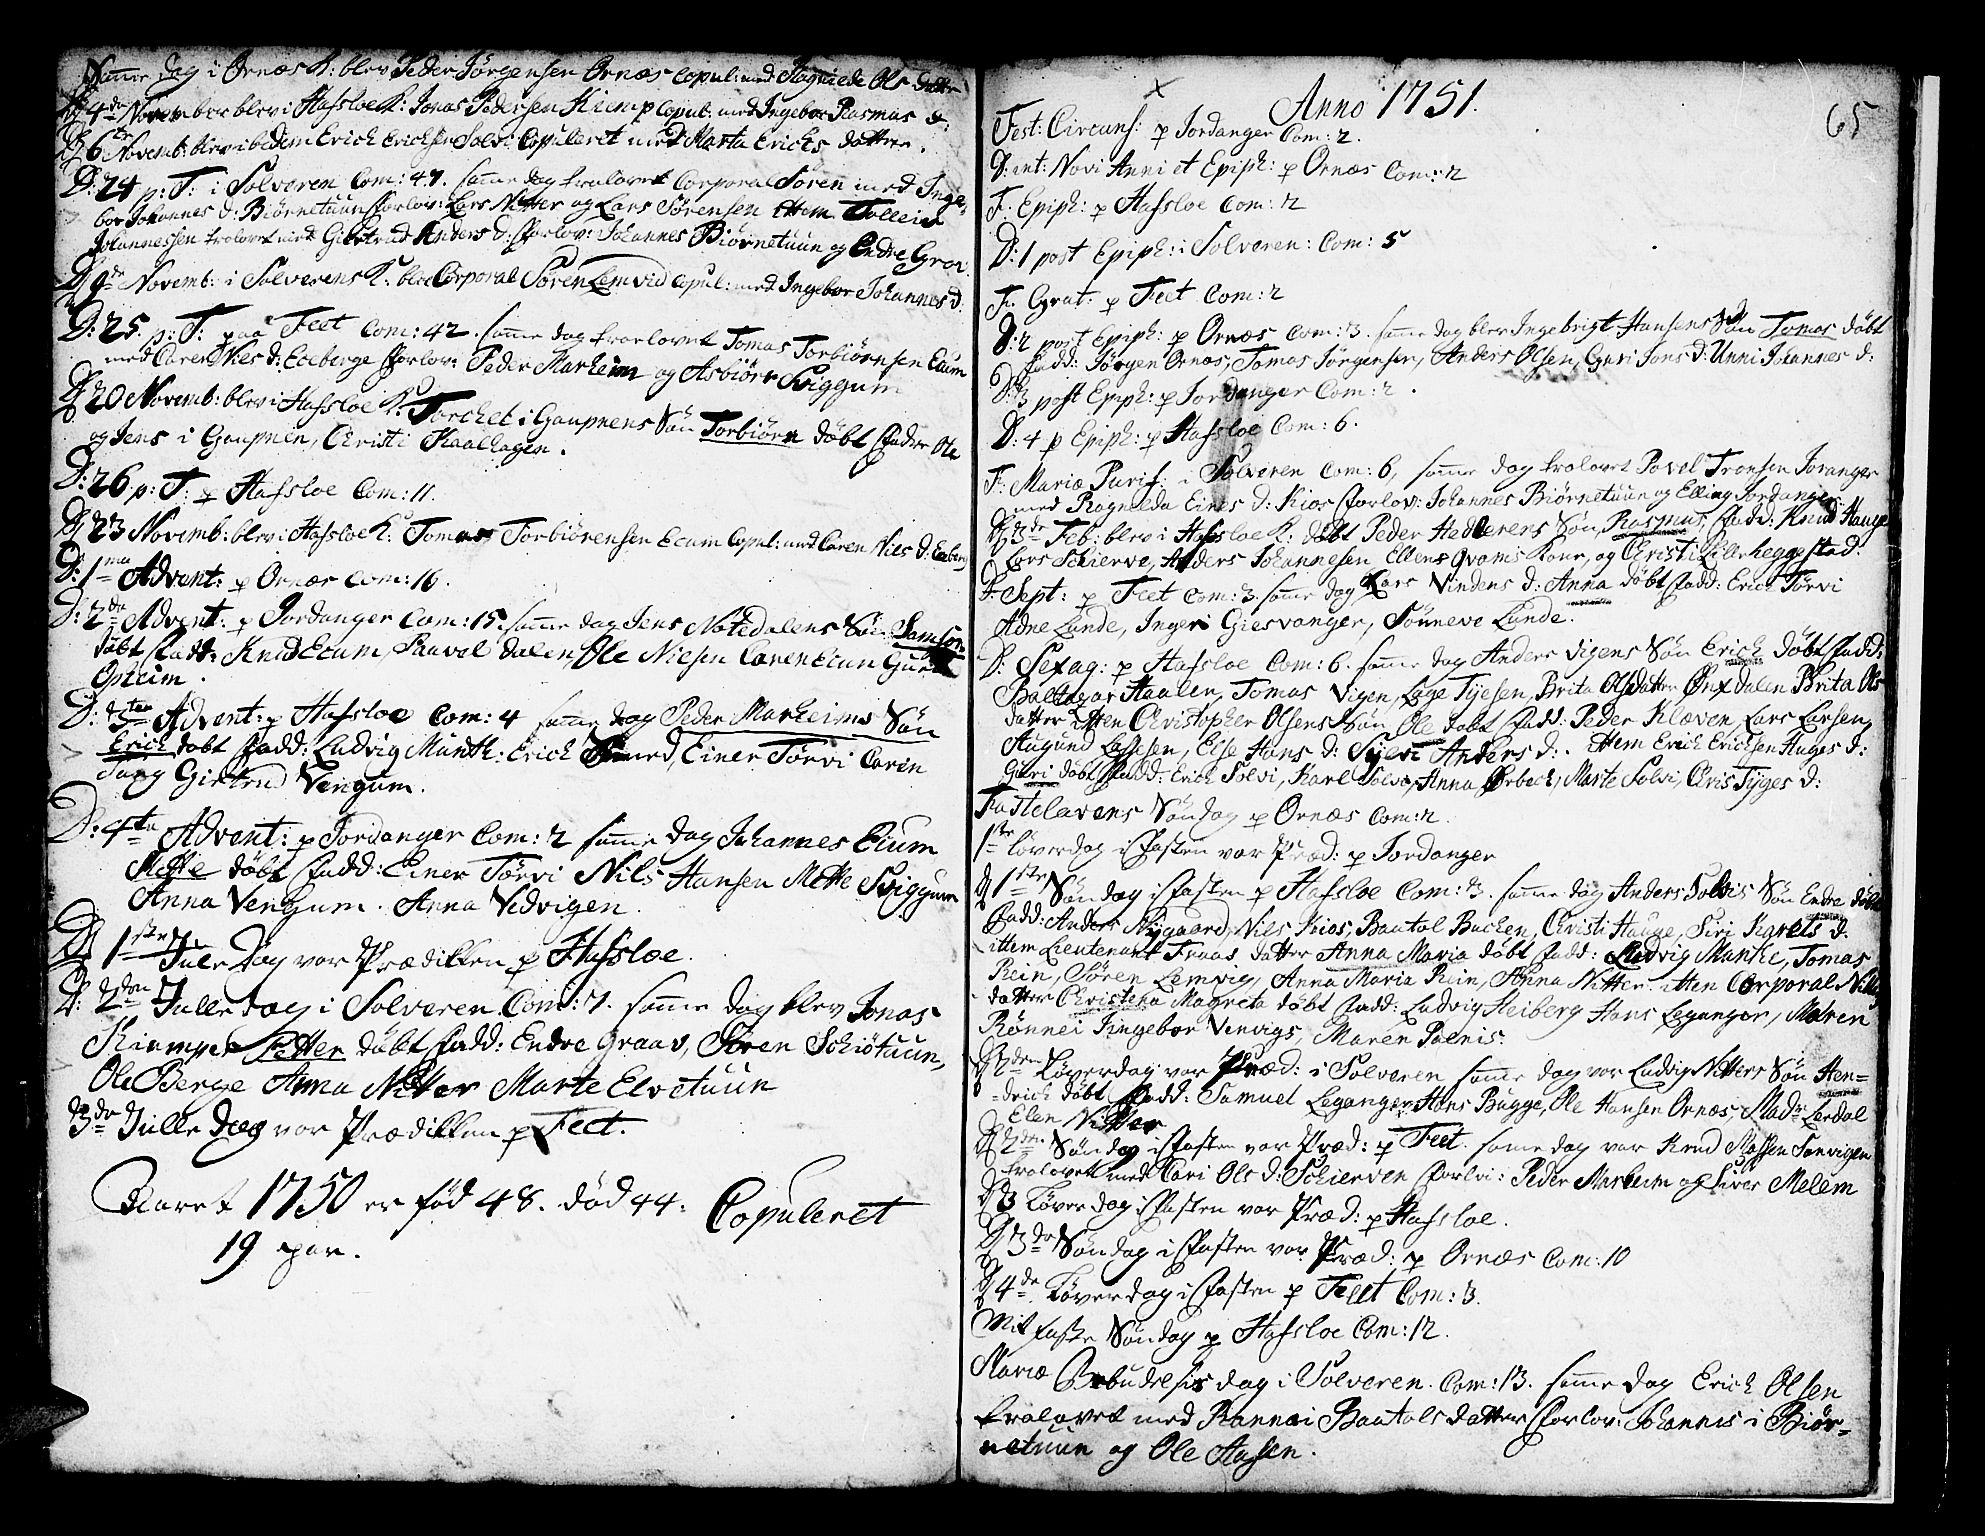 Samme dag i Ornæs K: blev Peder Jørgensen Ornæs Copul: med Ragniede Ols Datter
D. 4de November blev i Hafsloe K: Jonas Pedersen Kiemp Copul: med Ingebor Rasmus d:
D. 6te Novemb: blev ibidem Erich Erichsen Solvi Copuleret med Marta Erichs datter.
D: 24 p: T: i Solveren Com: 47. samme dag trolovet Corporal Søren med Inge-
bor Johannes d: Biørnetuun forlov: Lars Nitter og Lars Sørensen ittem Tolleiv
Johannessen trolovet med Giertrud Anders d: forlov: Johannes Biørnetuun og Endre Grov.
D. 9de Novemb: i Solverens K: blev Corporal Søren Lemvid Copul: med Ingebor Johannes d.
D: 25 p: T: paa Feet Com: 42. samme dag trolovet Tomas Torbiørnsen Ecum
med Caren Niels d: Eceberge forlov: Peder Marheim og Asbiørn Sviggum
D. 20 Novemb: blev i Hafsloe K: Torchel i Gaupnens Søn Torbiørn døbt fadd: Ole
og Jens i Gaupnen, Christi Kaalhagen.
D: 26 p: T: p Hafsloe Com: 11.
D. 23 Novemb: blev i Hafsloe K: Tomas Torbiørensen Ecum Copul: med Caren Niels d: Eceberg
D: 1ma Advent: p Ornæs Com: 16.
D: 2da Advent: p Jordanger Com: 15. samme dag Jens Notedalens Søn Samson
døbt fadd: Knud Ecum, Paavel dalen, Ole Nielsen Caren Ecum Guri
Opheim.
D: 3tia Advent: p Hafsloe Com: 4 samme dag Peder Marheims Søn
Erich døbt fadd: Ludvig Munth: Erich Einer Tørvi Carin
Giertrud Vengum.
D: 4ta Advent: p Jordanger Com: 2 samme dag Johannes Ecum
Mette døbt fadd: Einer Tørvi Nils Hansen Mette Sviggum
Anna Vengum. Anna Vedvigen.
D. 1ste Jule Dag var Prædikken p Hafsloe.
D: 2den Julle dag i Solveren Com: 7. samme dag blev Jonas
Kiempes Petter døbt fadd: Endre Graav, Søren Schiøtuun,
Ole Berge Anna Nitter Marte Elvetuun
3de Julle dag var Prædikken p Feet.
Aaret 1750 er fød 48. død 44. Copuleret
19 par.
65
Anno 1751.
Fest: Circums: p Jordanger Com: 2.
D: int: Novi Anni et Epiph: p Ornæs Com: 2
F. Epiph: p Hafsloe Com: 2
D: 1 post Epiph: i Solveren: Com: 5
F. Gvat: p Feet Com: 2
D: 2 post Epiph: p Ornæs Com: 3. samme dag blev Ingebrigt Hansens Søn Tomas døbt
fadd: Jørgen Ornæs, Tomas Jørgensen, Anders Olsen, Guri Jons d: Unni Johannes d:
D: 3 post Epiph: p Jordanger Com: 2.
D: 4 p Epiph: p Hafsloe Com: 6.
F: Mariæ Purif: i Solveren Com: 6, samme dag trolovet Povel Tronsen Joranger
med Ragnelda Einers d: Kios forlov: Johannes Biørnetuun og Elling Jordanger
D. 3de Feb: blev i Hafsloe K: døbt Peder Hedlerens Søn Rasmus, fadd: Knud Hauge
Lars Schierve, Anders Johannesen Ellens Qvams Kone, og Christi Lillehegge stad.
D: Sept: p Feet Com: 3. samme dag Lars Vindens d: Anna døbt fadd: Erich Tørvi
Adne Lunde, Ingeri Giesvanger, Sønneve Lunde.
D: Sexag: p Hafsloe Com: 6. samme dag Anders Vigens Søn Erich døbt fadd:
Baltazar Haalen, Tomas Vigen, Lage Tyesen, Brita Olsdatter Ønxdalen Brita Ols
datter itten Christopher Olsens Søn Ole døbt fadd: Peder Klæven, Lars Larsen
Augund Lassesen, Else Hans d: Sylvi Anders d: ittem Erich Erichsen Huges d:
Guri døbt fadd: Erich Solvi, Karl Solvi, Anna Ørbech, Marte Solvi, Chris Tyges d:
Fastelavens Søndag p Ornæs Com: 2.
1ste løverdag i fasten var Præd: p Jordanger
D. 1ste Søndag i fasten p Hafsloe Com: 3. samme dag Anders Solvis Søn Endre døbt
fadd: Anders Nygaard, Niels Kios, Baatol Buchen, Christi Hauge, Siri Karels d.
ittem Lieutenant Fraas datter Anna Maria døbt fadd: Ludvig Munthe, Tomas
Rein, Søren Lemvig, Anna Maria Rein, Anna Nitter itten Corporal Niels
datter Christena Magreta døbt fadd: Ludvig Heiberg Hans Leganger, Maren
Rønnei Jngebor Venvigs, Maren Polnis.
D. 2den Løverdag var Præd: i Solveren samme dag var Ludvig Nitters Søn Hen-
-drich døbt fadd: Samuel Leganger, Hans Bugge, Ole Hansen Ornæs, Madr Lerdal
Elen Nitter
D. 2den Søndag i fasten var Præd: p Feet. samme dag var Knud Monsen Sanvigen
trolovet med Cari Ols d: Schierven forlov: Peder Marheim og Siver Melem
D. 3 Løverdag i fasten var Præd: p Hafsloe.
D. 3de Søndag i fasten var Præd: p Ornæs Com: 10
D. 4de Løverdag i fasten p Feet Com: 3.
Mit faste Søndag p Hafsloe Com: 12.
Mariæ Bebudelsis dag i Solveren. Com: 13. samme dag Erich Olsen
trolovet med Rannei Baatols datter forlov: Johannis i Biør-
netuun og Ole Hassen.